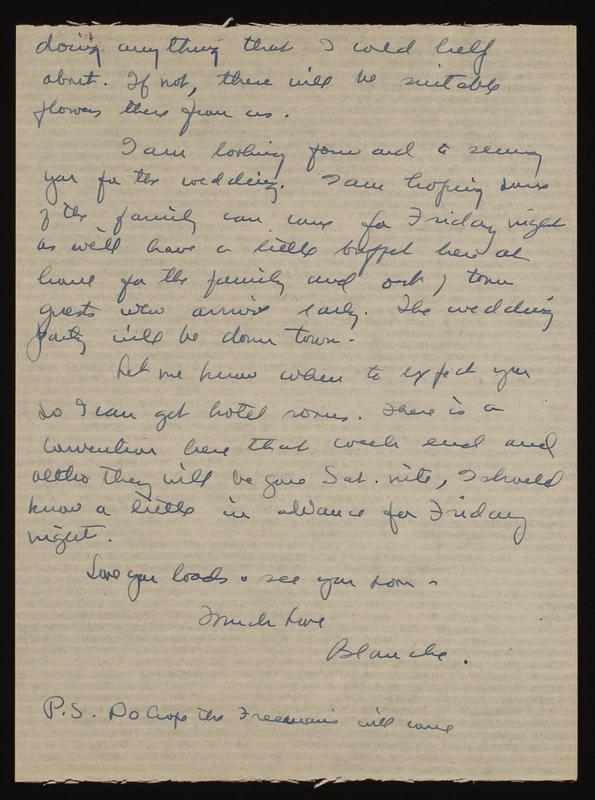 doing anything that I could help
about. If not, there will be suitable
flowers there from us.
I am looking forward to seeing
you for the wedding. I am hoping some
of the family can come for Friday night
as we'll have a little buffet here at
home for the family and out of town
guests who arrive early. The wedding
party will be down town.
Let me know when to expect you
so I can get hotel rooms. There is a
convention here that week end and
altho they will be gone Sat. nite, I should
know a little in advance for Friday
night.
Love you loads & see you soon -
Much love
Blanche.
P.S. Do hope the Freemans will come